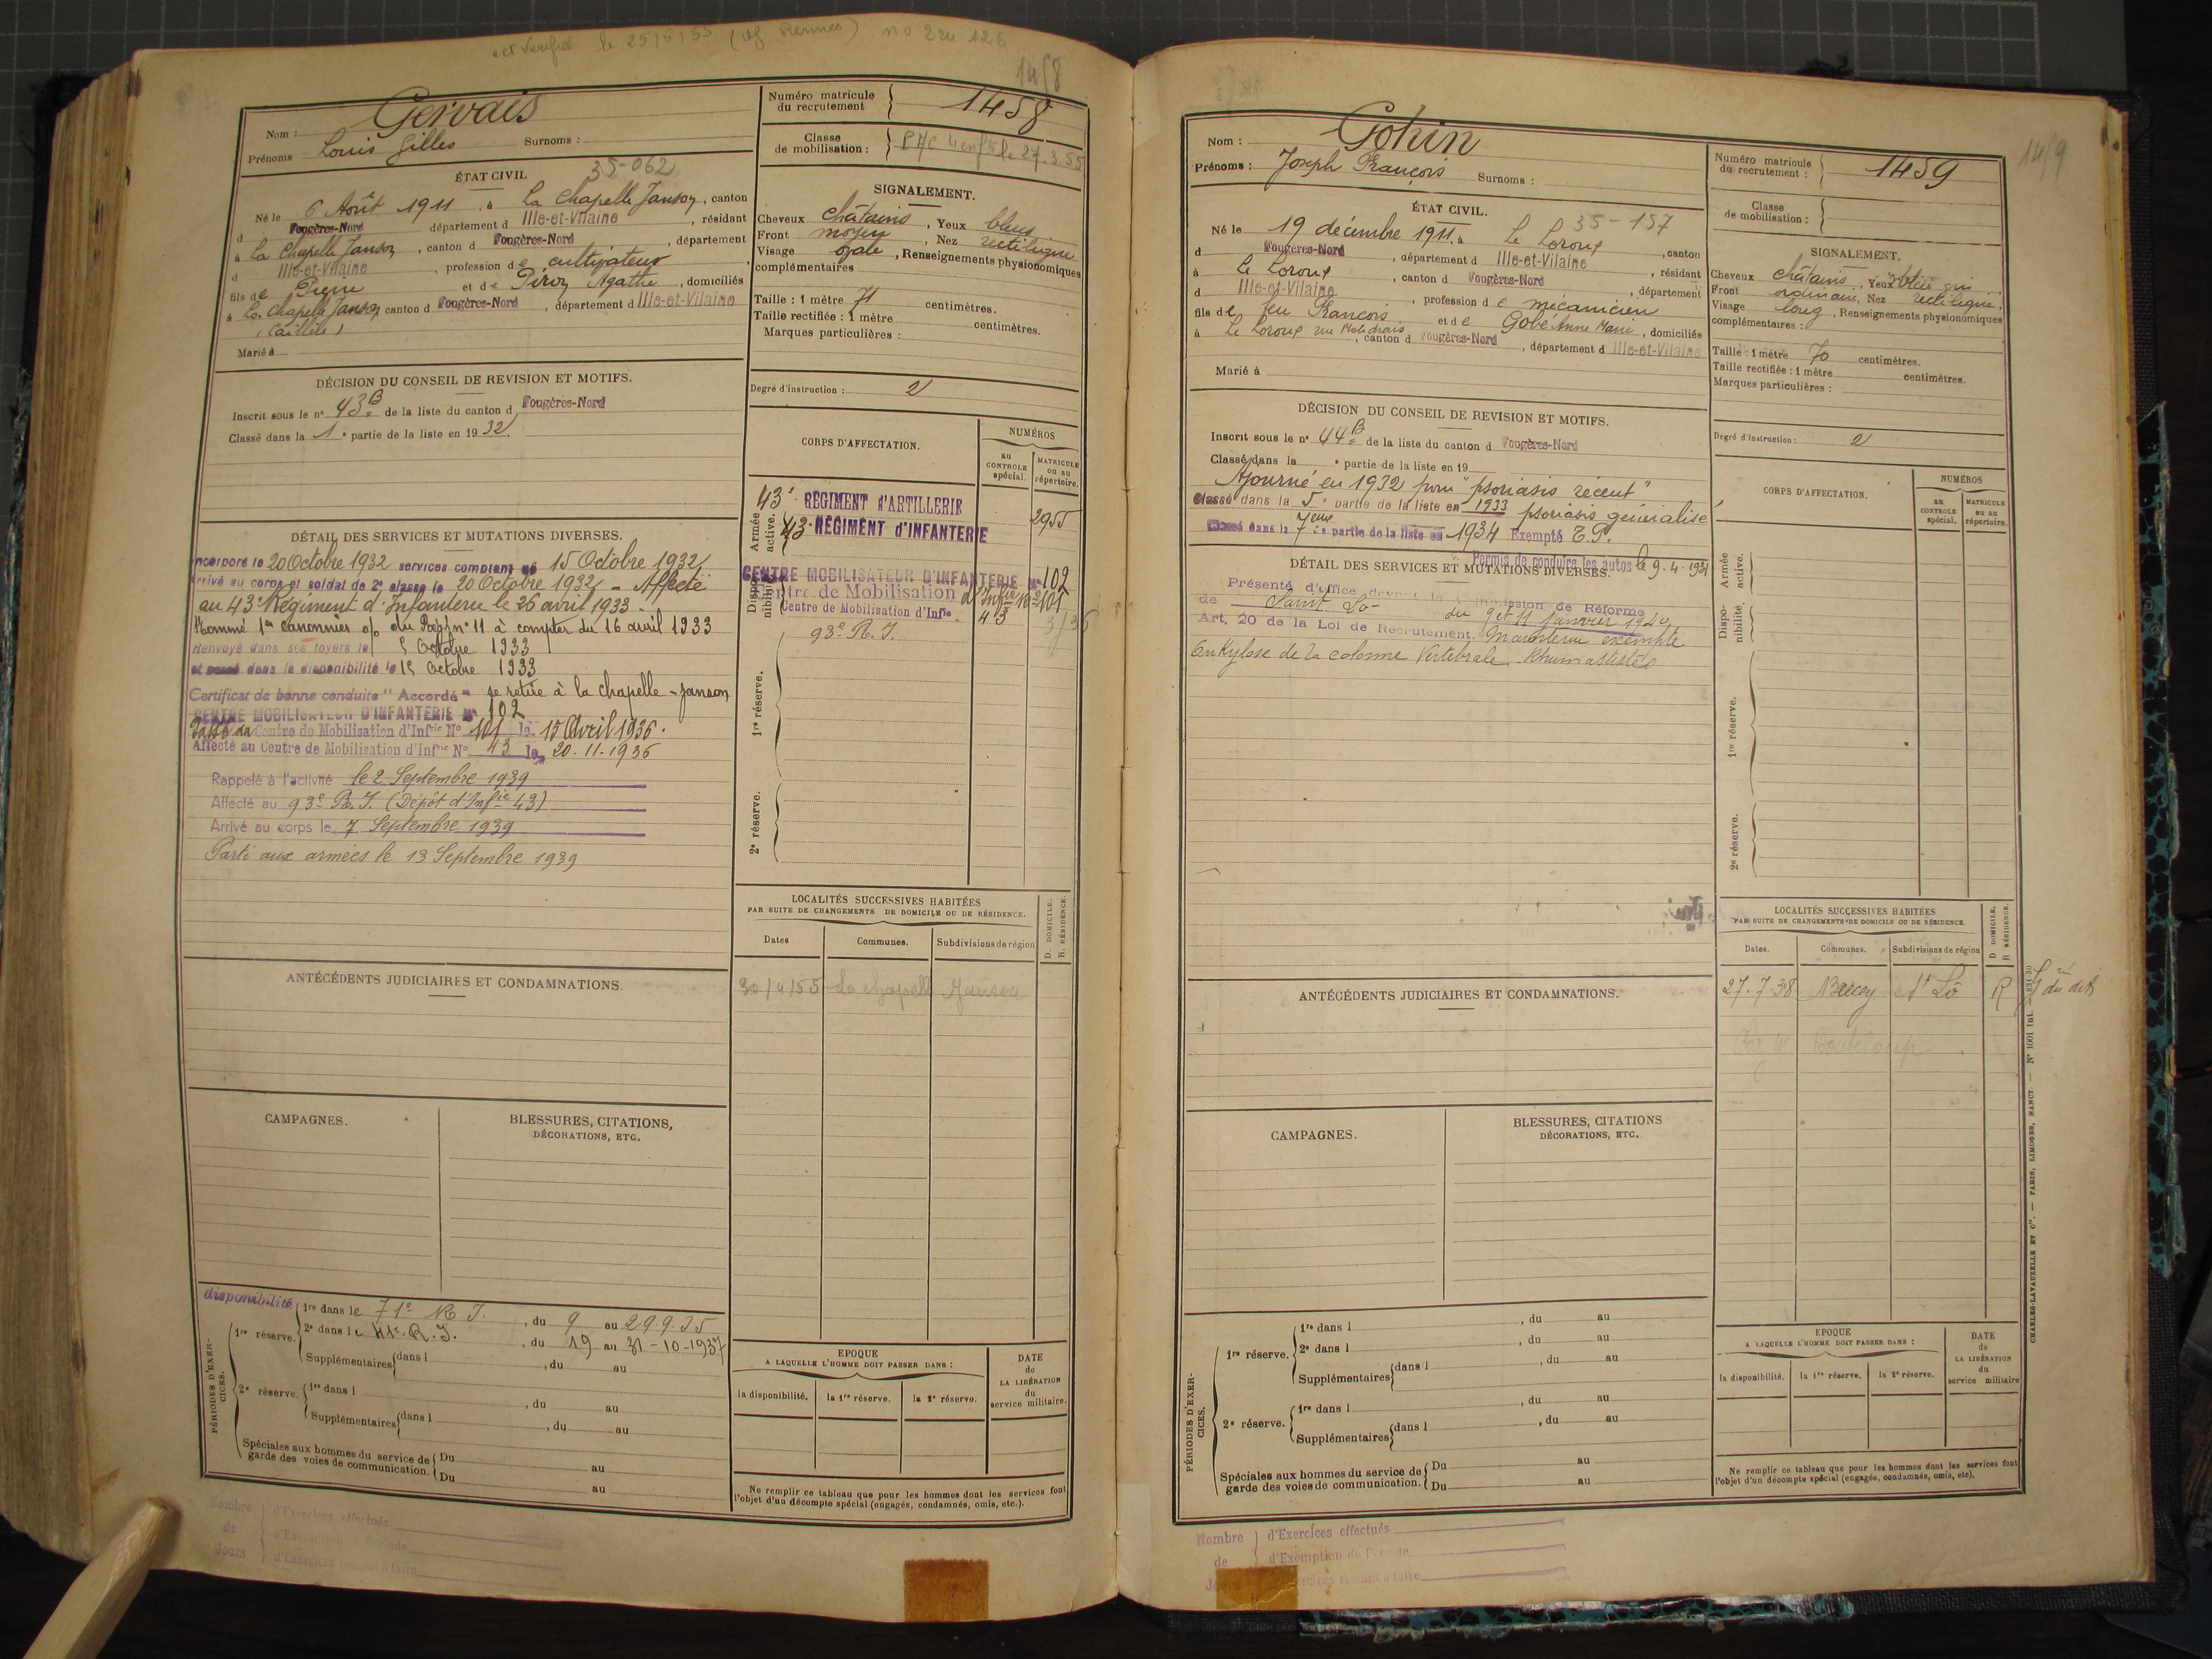 le 25/5/55 (Rennes) no
1458
Nom : Gervais
Prénoms Louis Gilles Surnoms :
Numéro matricule du recrutement 1458
Classe de mobilisation : le 27.3.55
ÉTAT CIVIL
35-062
Né le 6 Août 1911, à La Chapelle Janson, canton
d Fougères-Nord département d Ille-et-Vilaine, résidant
à La Chapelle Janson, canton d Fougères-Nord, département
d Ille-et-Vilaine, profession de cultivateur,
fils de Pierre et de Piron Agathe, domiciliés
à La Chapelle Janson canton d Fougères-Nord, département d Ille-et-Vilaine
Marié à
SIGNALEMENT.
Cheveux châtains, Yeux bleus
Front moyen, Nez rectiligne
Visage ovale, Renseignements physionomiques
complémentaires
Taille : 1 mètre 71 centimètres.
Taille rectifiée : 1 mètre centimètres.
Marques particulières :
Degré d'instruction : 2
DÉCISION DU CONSEIL DE REVISION ET MOTIFS.
Inscrit sous le n° 43B de la liste du canton d Fougères-Nord
Classé dans la 1e partie de la liste en 1932.
CORPS D'AFFECTATION.
NUMÉROS
au CONTROLE spécial.
MATRICULE ou au répertoire.
Armée active.
43e RÉGIMENT d'ARTILLERIE 2955
43e RÉGIMENT d'INFANTERIE
Disponibilité
CENTRE MOBILISATEUR D'INFANTERIE N° 102
Centre de Mobilisation d'Infie N° 101
Centre de Mobilisation d'Infie. 43
1re réserve.
93e R.I.
2e réserve.
DÉTAIL DES SERVICES ET MUTATIONS DIVERSES.
Incorporé le 20 Octobre 1932 services comptant du 15 Octobre 1932
Arrivé au corps et soldat de 2e classe le 20 Octobre 1932 - Affecté
au 43e Régiment d'Infanterie le 26 avril 1933
Nommé 1er canonnier o/o du Régt n° 11 à compter du 16 avril 1933
Renvoyé dans ses foyers le 5 Octobre 1933
et passé dans la disponibilité le 15 Octobre 1933
Certificat de bonne conduite "Accordé" se retire à la chapelle-janson
CENTRE MOBILISATEUR D'INFANTERIE N° 102
Passé au Centre de Mobilisation d'Infrie N° 101 le 15 Avril 1936.
Affecté au Centre de Mobilisation d'Infrie N° 43 le 20.11.1936
Rappelé à l'activité le 2 Septembre 1939
Affecté au 93e R.I. (Dépôt d'Infie 43)
Arrivé au corps le 7 Septembre 1939
Parti aux armées le 13 Septembre 1939
LOCALITÉS SUCCESSIVES HABITÉES
PAR SUITE DE CHANGEMENTS DE DOMICILE OU DE RÉSIDENCE.
D. DOMICILE.
R. RÉSIDENCE.
Dates Communes. Subdivisions de région
30/4/55 La chapelle Janson
ANTÉCÉDENTS JUDICIAIRES ET CONDAMNATIONS.
CAMPAGNES.
BLESSURES, CITATIONS,
DÉCORATIONS, ETC.
PÉRIODES D'EXERCICES.
disponibilité
1re réserve. 1re dans le 71e R I., du 9 au 29.9.35
2e dans le 41e R.I., du 19 au 31-10-1937
Supplémentaires dans l , du au
2e réserve. 1re dans l , du au
Supplémentaires dans l , du au
Spéciales aux hommes du service de garde des voies de communication. Du au
Du au
EPOQUE
A LAQUELLE L'HOMME DOIT PASSER DANS :
la disponibilité. la 1re réserve. la 2e réserve.
DATE de LA LIBÉRATION du service militaire.
Ne remplir ce tableau que pour les hommes dont les services font
l'objet d'un décompte spécial (engagés, condamnés, omis, etc.).
Nombre de Jours
d'Exercices effectués
d'Exemption de Période
d'Exercices restant à faire
1459
Nom : Gohin
Prénoms : Joseph François Surnoms :
Numéro matricule du recrutement : 1459
Classe de mobilisation :
ÉTAT CIVIL.
35-157
Né le 19 décembre 1911, à Le Loroux, canton
d Fougères-Nord, département d Ille-et-Vilaine, résidant
à Le Loroux, canton d Fougères-Nord, département
d Ille-et-Vilaine, profession de mécanicien
fils de feu François et de Gobé Anne Marie, domiciliés
à Le Loroux, canton d Fougères-Nord, département d Ille-et-Vilaine
Marié à
SIGNALEMENT.
Cheveux châtains, Yeux bleu gris
Front ordinaire, Nez rectiligne,
Visage long, Renseignements physionomiques
complémentaires :
Taille : 1 mètre 70 centimètres.
Taille rectifiée : 1 mètre centimètres.
Marques particulières :
Degré d'instruction : 2
DÉCISION DU CONSEIL DE REVISION ET MOTIFS.
Inscrit sous le n° 44B de la liste du canton d Fougères-Nord
Classé dans la e partie de la liste en 19
Ajourné en 1932 pour "psoriasis récent"
Classé dans la 5e partie de la liste en 1933 psoriasis généralisé
Classé dans la 7eme partie de la liste en 1934 Exempté
CORPS D'AFFECTATION.
NUMÉROS
au CONTROLE spécial.
MATRICULE ou au répertoire.
Armée active.
Disponibilité.
1re réserve.
2e réserve.
Permis de conduire les autos le 9.4.1931
DÉTAIL DES SERVICES ET MUTATIONS DIVERSES.
Présenté d'office devant la Commission de Réforme
de Saint Lô du 9 et 11 Janvier 1940
Art. 20 de la Loi de Recrutement. Maintenu exempté
Ankylose de la colonne Vertébrale
LOCALITÉS SUCCESSIVES HABITÉES
PAR SUITE DE CHANGEMENTS DE DOMICILE OU DE RÉSIDENCE.
D. DOMICILE.
R RÉSIDENCE.
Dates. Communes. Subdivisions de région
27.7.38 Brécey St Lô R
ANTÉCÉDENTS JUDICIAIRES ET CONDAMNATIONS.
CAMPAGNES.
BLESSURES, CITATIONS
DÉCORATIONS, ETC.
PÉRIODES D'EXERCICES.
1re réserve. 1re dans l , du au
2e dans l , du au
Supplémentaires dans l , du au
2e réserve. 1re dans l , du au
Supplémentaires dans l , du au
Spéciales aux hommes du service de garde des voies de communication. Du au
Du au
EPOQUE
A LAQUELLE L'HOMME DOIT PASSER DANS :
la disponibilité. la 1re réserve. la 2e réserve.
DATE de LA LIBÉRATION du service militaire
Ne remplir ce tableau que pour les hommes dont les services font
l'objet d'un décompte spécial (engagés, condamnés, omis, etc).
CHARLES-LAVAUZELLE ET Cie. — PARIS, LIMOGES, NANCY. — N° 1001 Int.
Nombre de
d'Exercices effectués
d'Exemption de Période